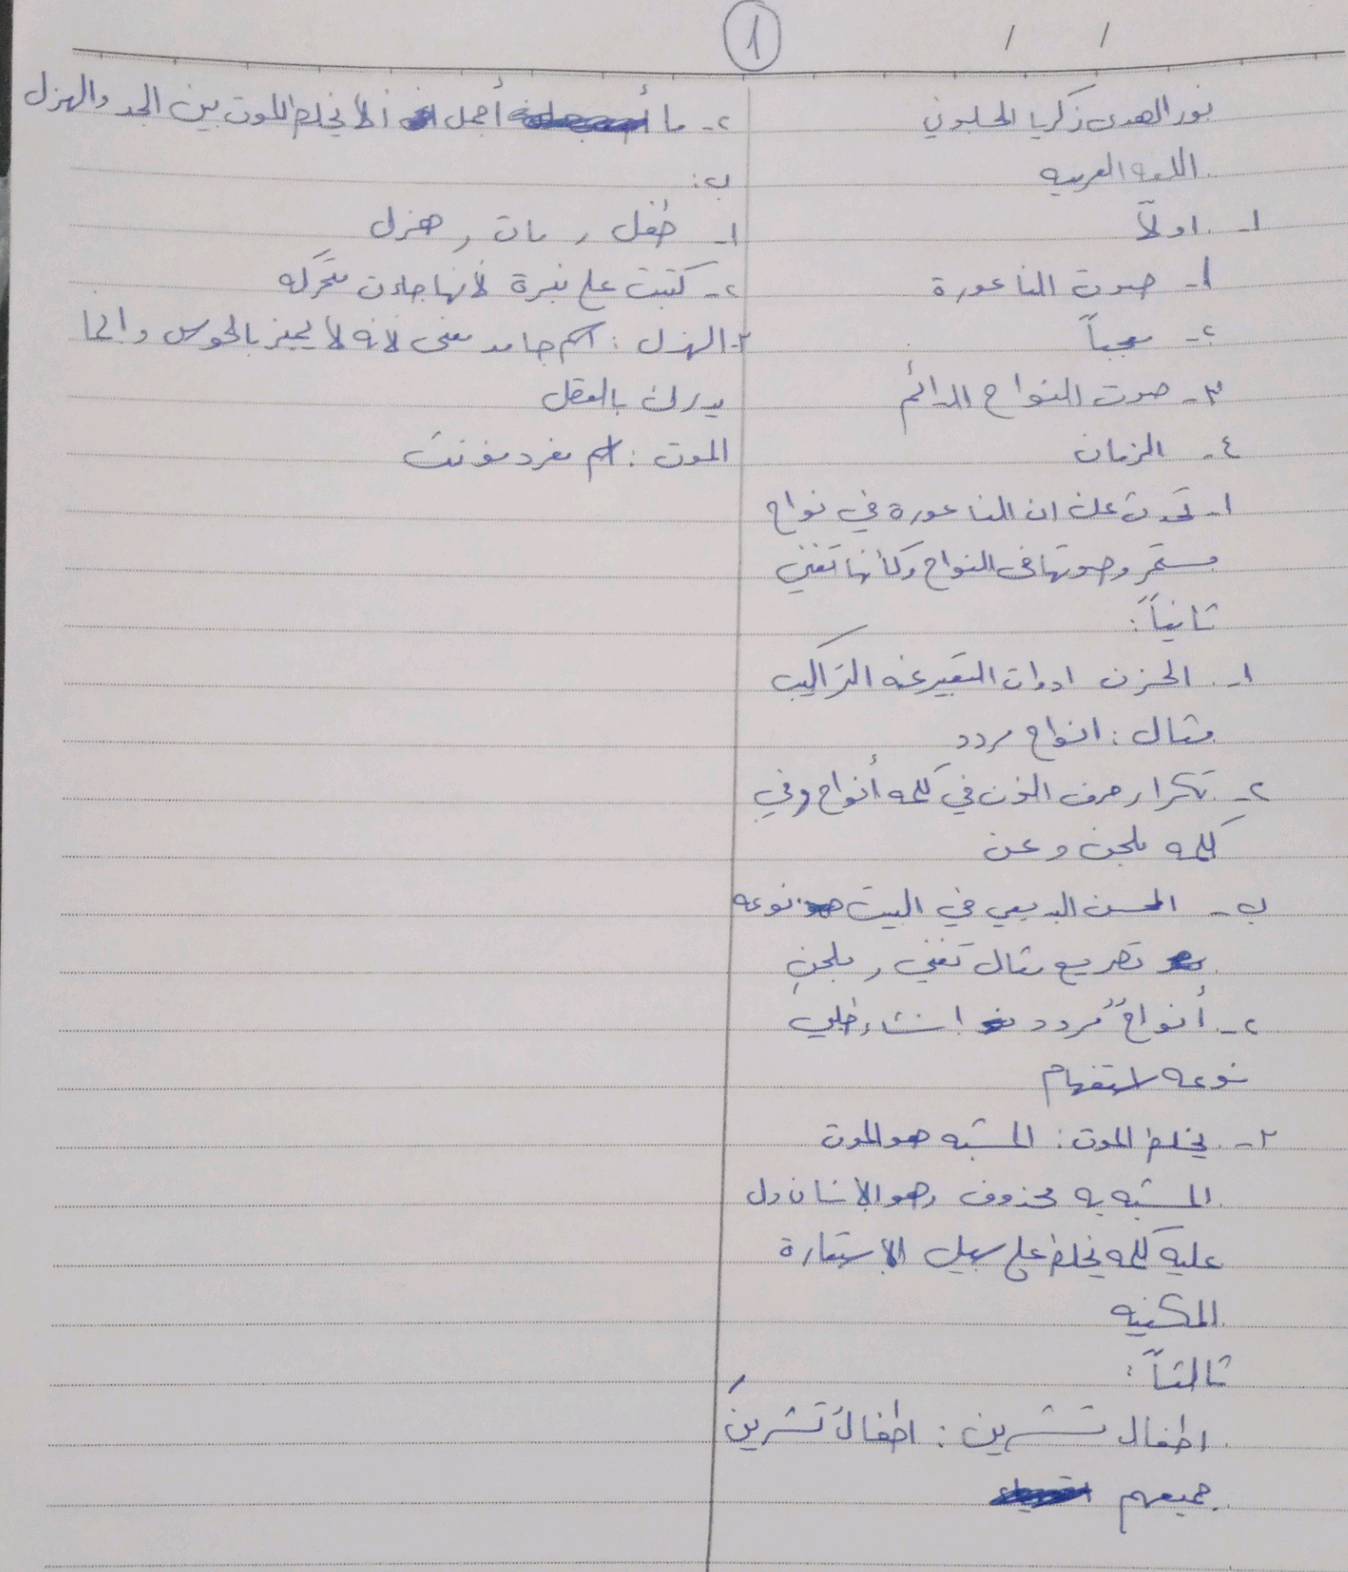 ١
/ /
نور الهدى زكريا الحلبوني
اللغه العربيه
١- اولاً
١- صوت الناعورة
٢- محباً
٣- صوت النواح الدائم
٤- الزمان
١- تحدث على ان الناعورة في نواح
مستمر وصوتها في النواح وكأنها تغني
ثانياً:
١- الحزن ادوات التعبير عنه التراكيب
مثال: انواح مردد
٢- تكرار حرف النون في كلمه أنواح وفي
كلمه بلحن وعن
ب- المحسن البديعي في البيت نوعه
تصريع مثال تغني , بلحن
٢- أنواحٌ مردد انشاء طلبي
نوعه استفهام
٣- يخلط الموت: المشبه هو الموت
المشبه به محذوف وهو الانسان دل
عليه كلمه يخلط على سبيل الاستعارة
المكنيه
ثالثاً:
اطفال تشرين: اطفالُ تشرينَ
جميعهم
٢- ما أجمل ألا يخلط الموت بين الجد والهزل
ب:
١- طفل , مات , هزل
٢- كتبت على نبرة لأنها جاءت متحركه
٣- الهزل: اسم جامد معنى لانه لا يميز بالحوس وانما
يدرك بالعقل
الموت: اسم مفرد مؤنث